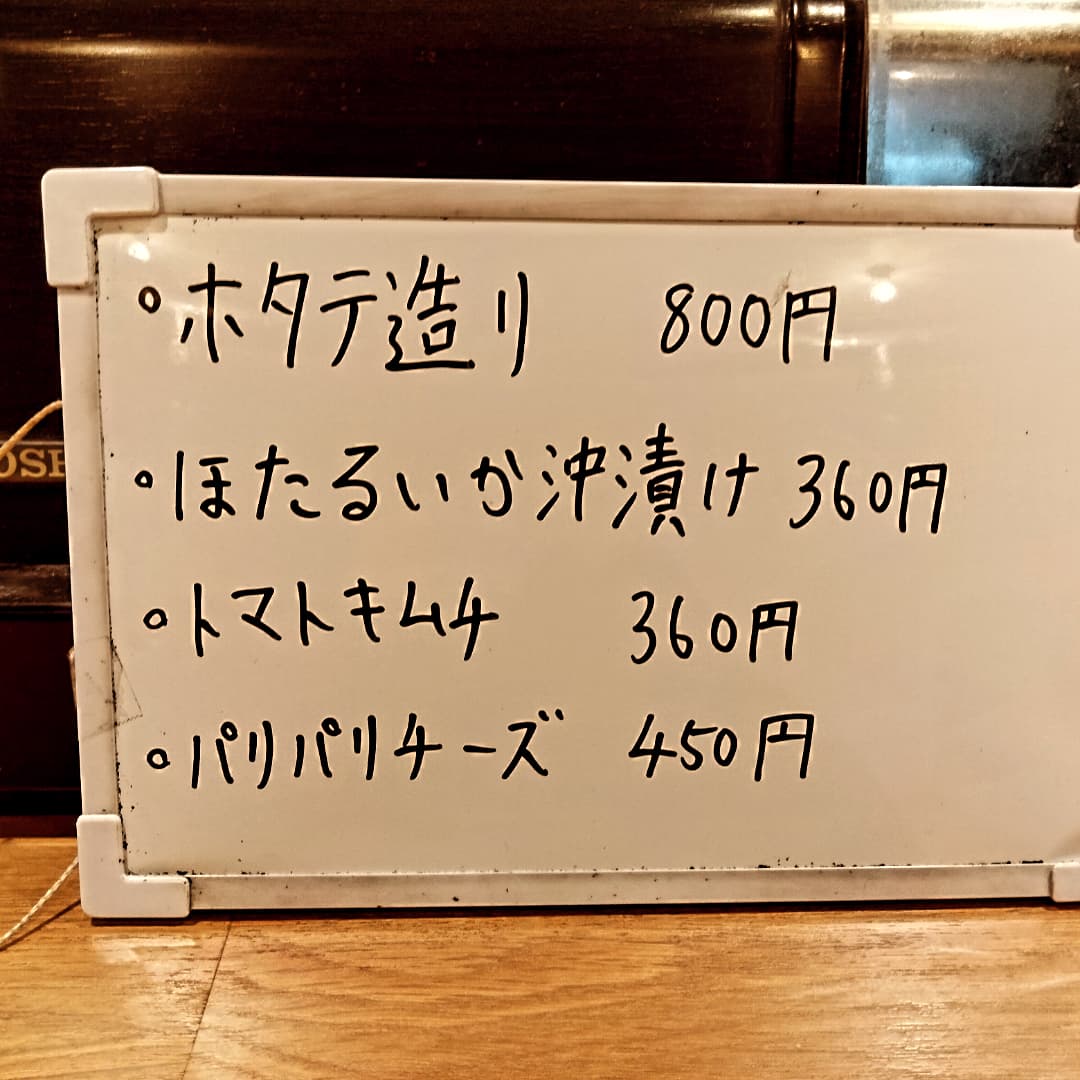 。ホタテ造り 800円
。ほたるいか沖漬け 360円
。トマトキムチ 360円
。パリパリチーズ 450円